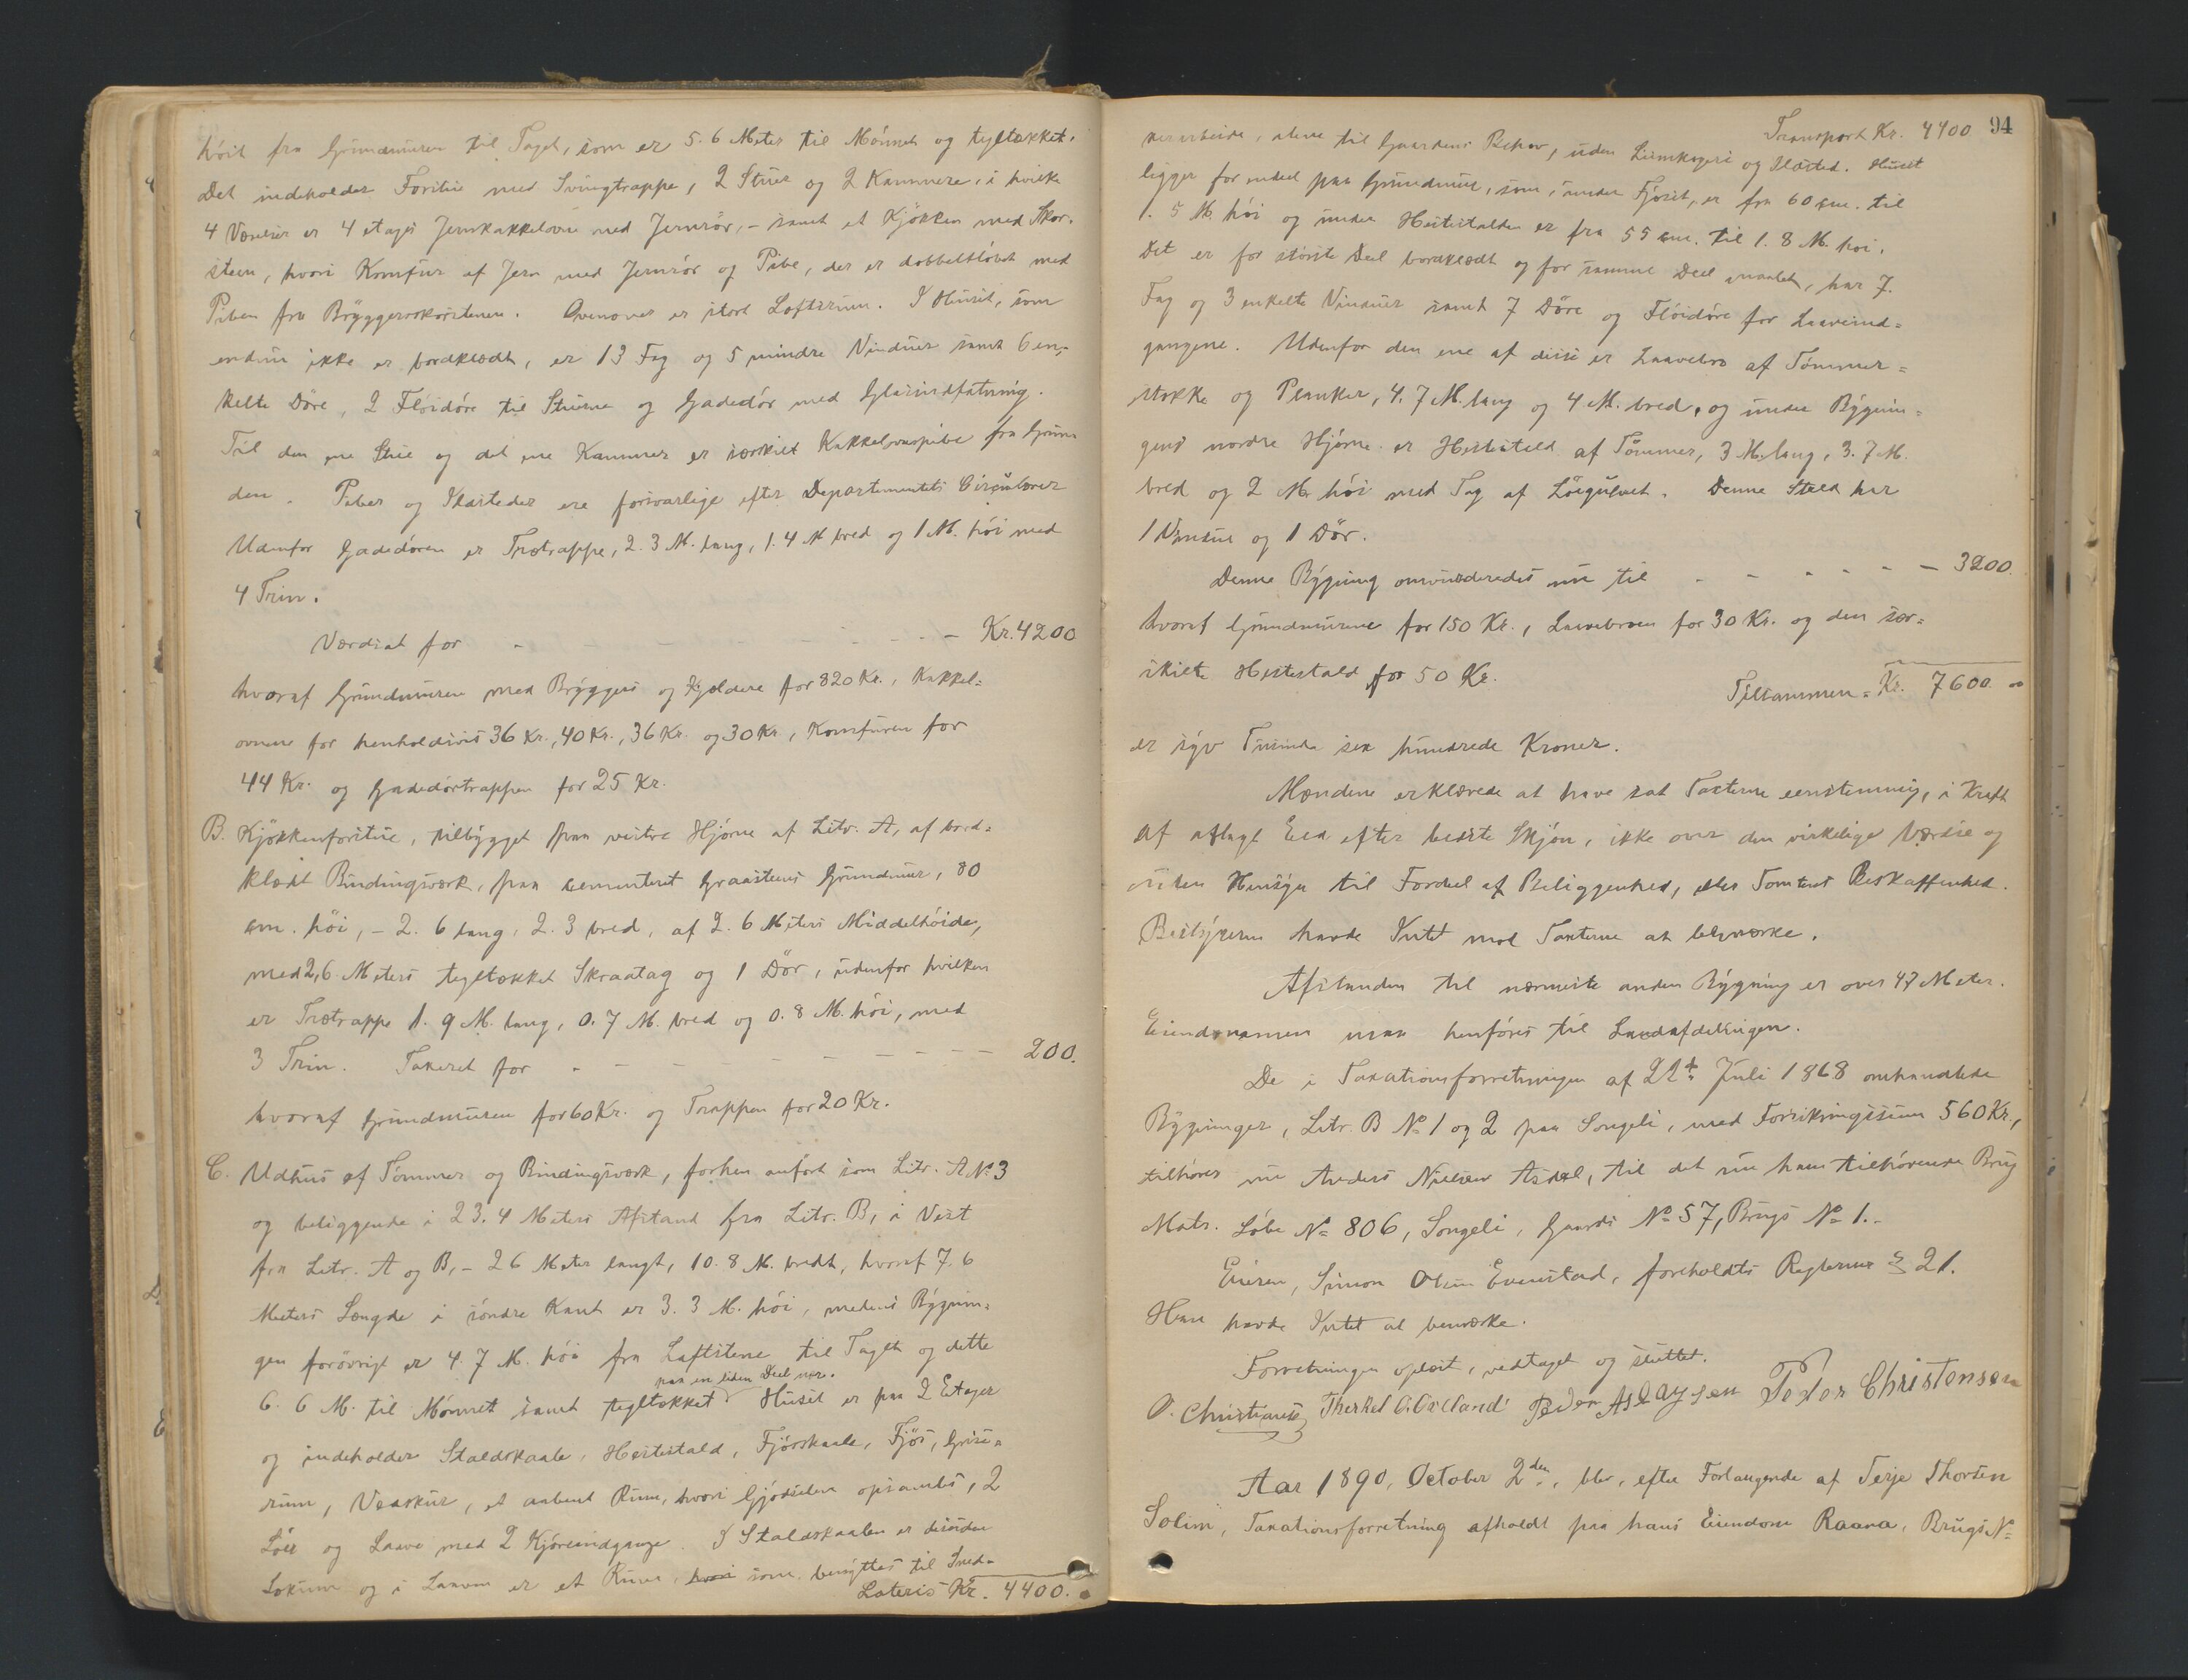 höit fra Grundmuren til Taget, som er 5.6 Meter til Mönnet og tegltækket.
Det indeholder Forstue med Svingtrappe, 2 Stuer og 2 Kammere, i hvilke
4 Værelser er 4 etages Jernkakkelovne med Jernrör, – samt et Kjökken med Skor-
steen, hvori Komfur af Jern med Jernrör og Pibe, der er dobbeltlöbet med
Piben fra Bryggerskorstenen. Ovenover er stort Loftsrum. I Huset, som
endnu ikke er bordklædt, er 13 Fag og 5 mindre Vinduer samt 6 en-
kelte Döre, 2 Flöidöre til Stuerne og Gadedör med Glasindfatning.
Til den ene Stue og det ene Kammer er særskilt Kakkelovnspibe fra Grun-
den. Piber og Ildsteder ere forsvarlige efter Departementets Circulærer
Udenfor Gadedören er Trætrappe, 2.3 M. lang, 1.4 M bred og 1 M. höi med
4 Trin.
Værdsat for – – – – – – – Kr. 4200
hvoraf Grundmuren med Bryggers og Kjældere for 820 Kr., Kakkel-
ovnene for henholdsvis 36 Kr., 40 Kr., 36 Kr. og 30 Kr., Komfuren for
44 Kr. og Gadedörtrappen for 25 Kr.
B. Kjökkenforstue, tilbygget paa vestre Hjörne af Litr. A, af bord-
klædt Bindingsværk, paa cementeret Graasteens Grundmuur, 80
cm. höi, – 2.6 lang, 2.3 bred, af 2.6 Meters Middelhöide,
med 2,6 Meters tegltækket Skraatag og 1 Dör, udenfor hvilken
er Trætrappe 1.9 M. lang, 0.7 M. bred og 0.8 M. höi, med
3 Trin. Taxeret for – – – – – – – – 200.
hvoraf Grundmuren for 60 Kr. og Trappen for 20 Kr.
C. Udhus af Tömmer og Bindingsværk, forhen anfört som Litr. A No 3
og beliggende i 23.4 Meters Afstand fra Litr. B, i Vest
fra Litr. A og B, – 26 Meter langt, 10.8 M. bredt, hvoraf 7.6
Meters Længde i söndre Kant er 3.3 M. höi, medens Bygnin-
gen forövrigt er 4.7 M. höi fra Laftstene til Taget og dette
paa en liden Deel nær.
6.6 M. til Mönnet samt tegltækket Huset er paa 2 Etager
og indeholder Staldskaale, Hestestald, Fjösskaale, Fjös, Grise-
rum, Vedskur, et aabent Rum, hvori Gjödselen opsamles, 2
Löer og Laave med 2 Kjöreindgange. I Staldskaalen er desuden
Lokum og i Laaven er et Rum, hvori som benyttes til Sned-
Lateris Kr. 4400.
94
Transport Kr. 4400
kerarbeide, alene til Gaardens Behov, uden Liimkogeri og Ildsted. Huset
ligger for endeel paa Grundmuur, som, under Fjöset, er fra 60 cm. til
1.5 M. höi og under Hestestalden er fra 55 cm. til 1.8 M. höi.
Det er for störste Deel bordklædt og for samme Deel malet, har 7
Fag og 3 enkelte Vinduer samt 7 Döre og Flöidöre for Laaveind-
gangene. Udenfor den ene af disse er Laavebro af Tömmer-
stokke og Planker, 4.7 M. lang og 4 M. bred, og under Bygnin-
gens nordre Hjörne er Hestestald af Tömmer, 3 M. lang, 3.7 M.
bred og 2 M. höi med Tag af Löegulvet. Denne Stald har
1 Vindue og 1 Dör.
Denne Bygning omvurderedes nu til – – – – – – 3200.
hvoraf Grundmurene for 150 Kr., Laavebroen for 30 Kr. og den sær-
skilte Hestestald for 50 Kr.
Tilsammen = Kr. 7600.
er syv Tusinde sex hundrede Kroner.
Mændene erklærede at have sat Taxterne eenstemmig, i Kraft
af aflagt Eed efter bedste Skjön, ikke over den virkelige Værdie og
uden Hensyn til Fordeel af Beliggenhed, eller Tomtens Beskaffenhed.
Bestyreren havde Intet mod Taxterne at bemærke.
Afstanden til nærmeste anden Bygning er over 47 Meter.
Eiendommen maa henföres til Landafdelingen.
De i Taxationsforretningen af 22de Juli 1868 omhandlede
Bygninger, Litr. B No 1 og 2 paa Songeli, med Forsikringssum 560 Kr.,
tilhörer nu Anders Nielsen Asdal, til det nu ham tilhörende Brug
Matr. Löbe No 806, Songeli, Gaards No 57, Brugs No 1.
Eieren, Simon Olsen Evenstad, foreholdts Reglernes § 21.
Han havde Intet at bemærke.
Forretningen oplæst, vedtaget og sluttet.
O. Christiansen Therkel O. Peder Aslaksen Peder Christensen
Aar 1890, October 2den, blev, efter Forlangende af Terje Thorsen
Solim, Taxationsforretning afholdt paa hans Eiendom Raana, Brugs No